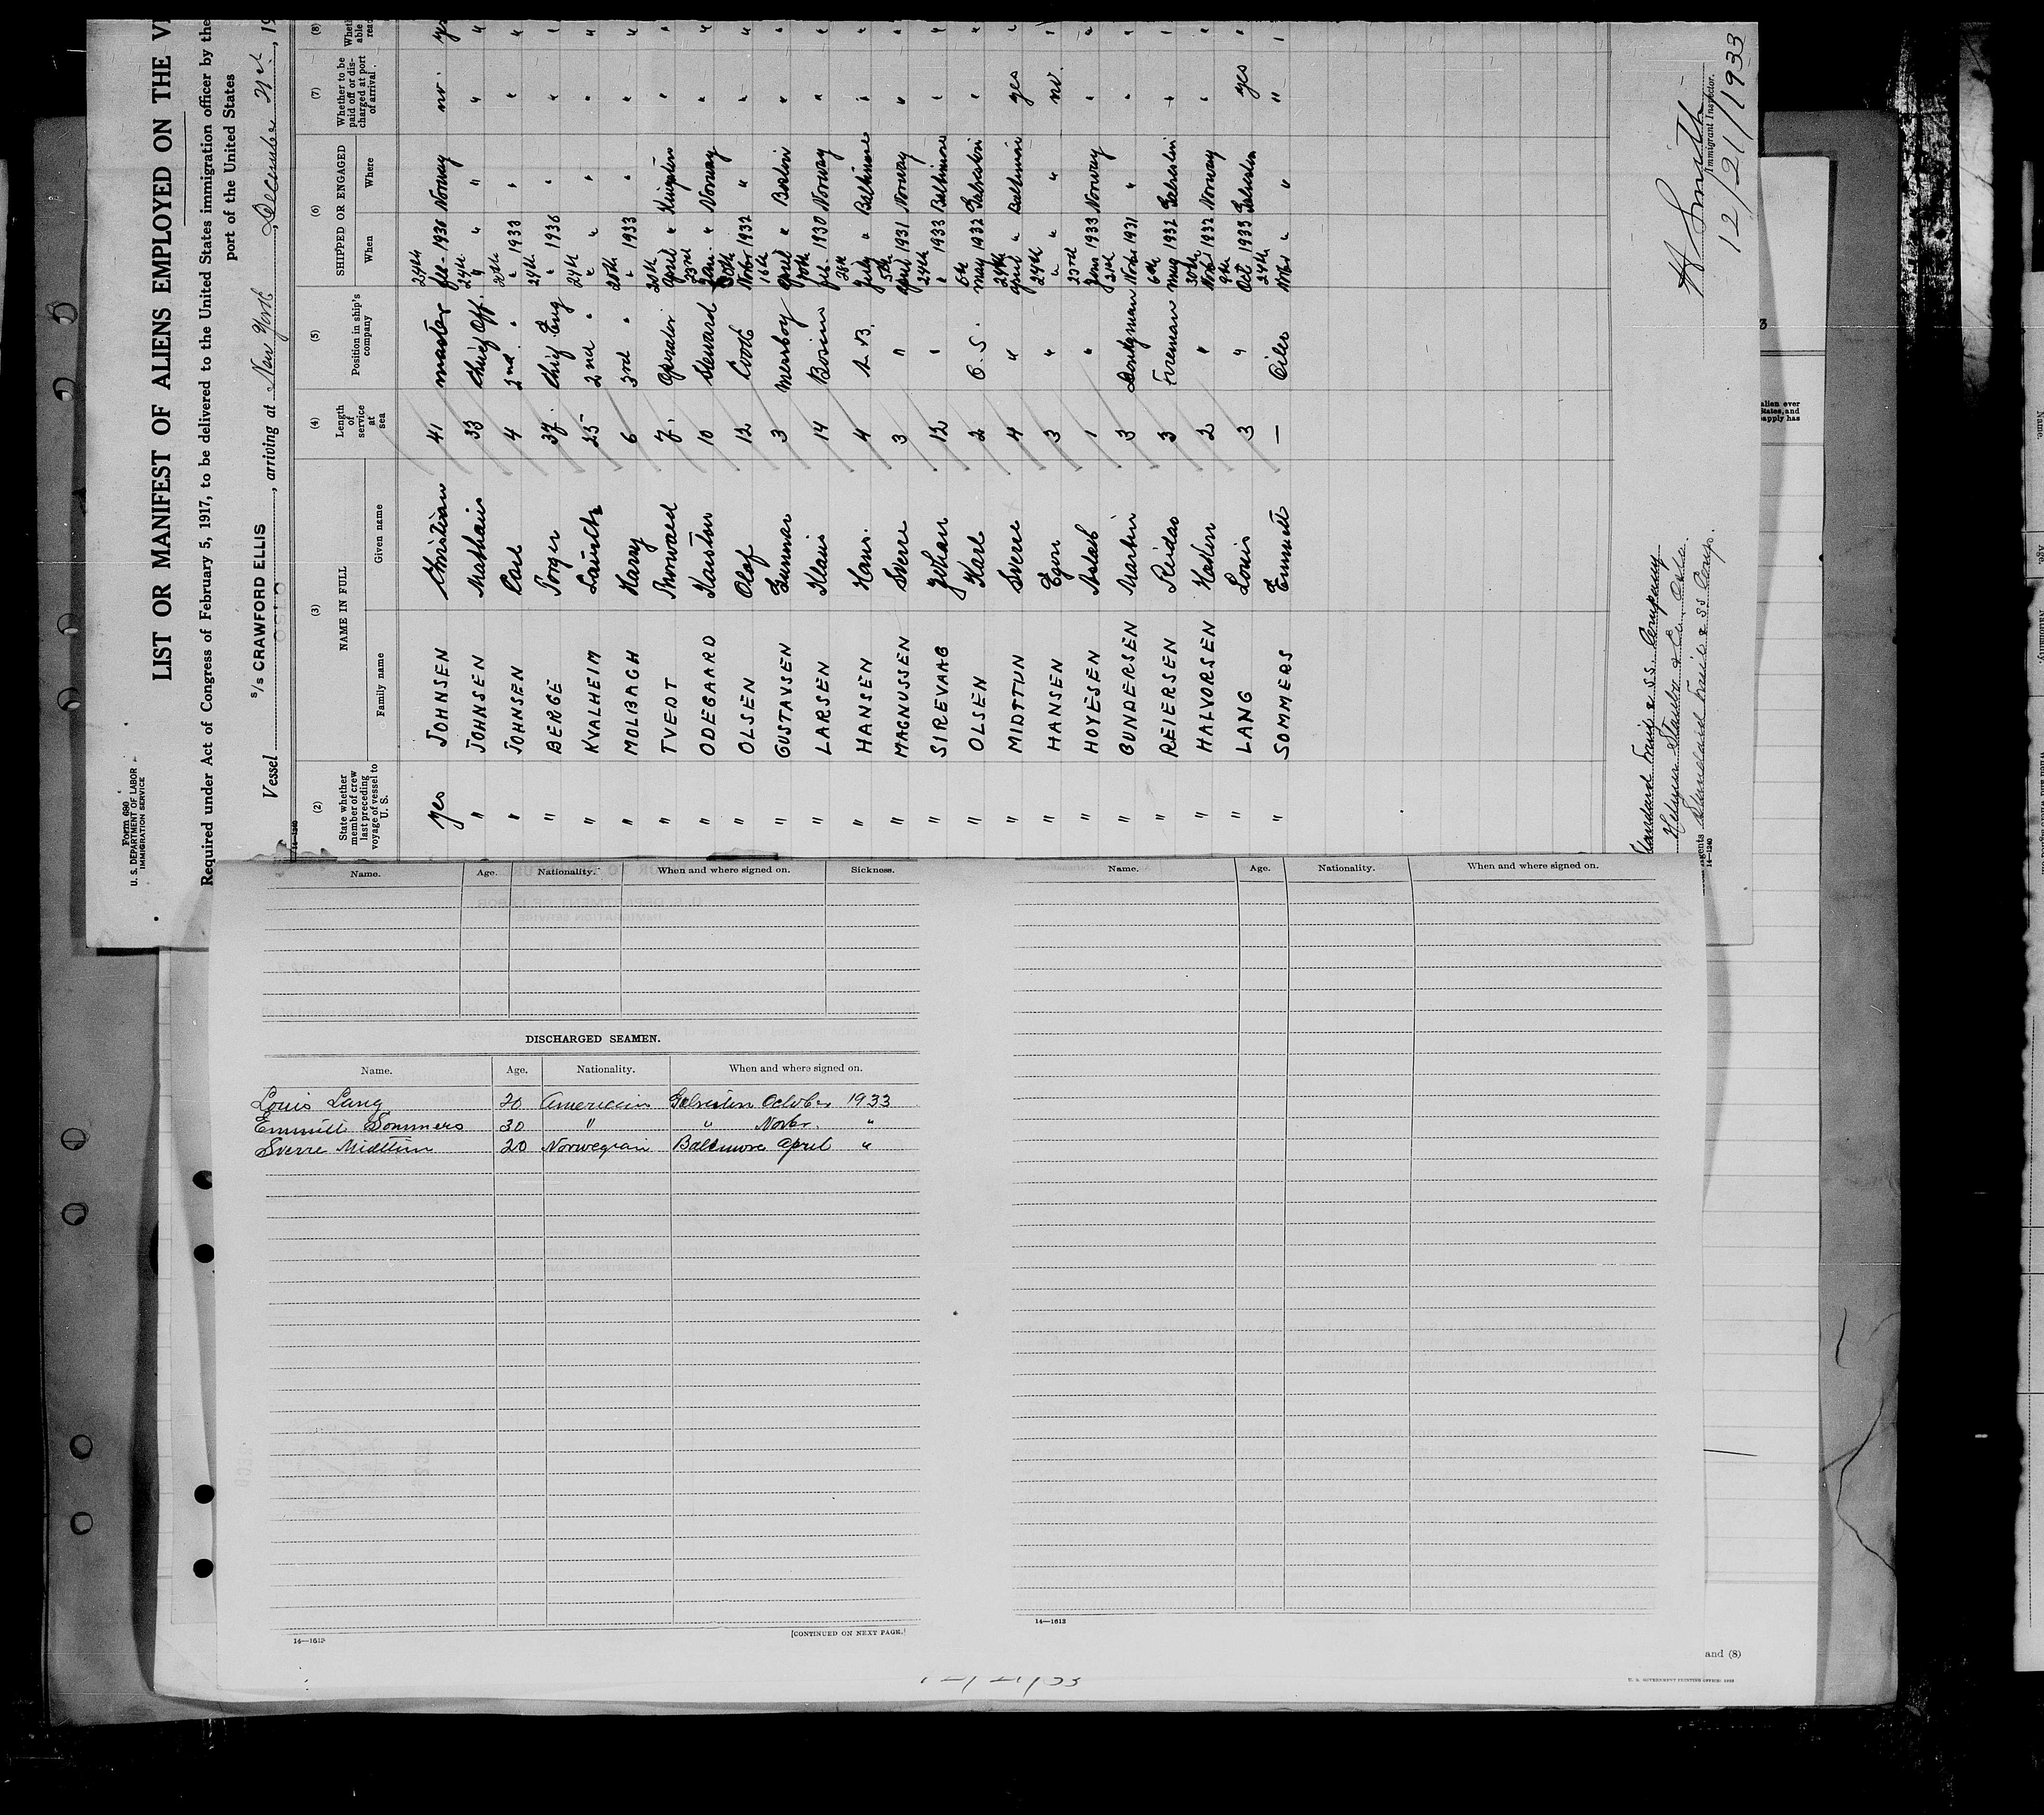 Form 680
U. S. DEPARTMENT OF LABOR
IMMIGRATION SERVICE
LIST OR MANIFEST OF ALIENS EMPLOYED ON THE
Required under Act of Congress of February 5, 1917, to be delivered to the United States immigration officer by the
port of the United States
Vessel S/S CRAWFORD ELLIS, arriving at New York, December 21st, 19
14—1240
(2) (3) (4) (5) (6) (7) (8)
State whether member of crew last preceding voyage of vessel to U. S. NAME IN FULL Family name Given name Length of service at sea Position in ship's company SHIPPED OR ENGAGED When Where Whether to be paid off or discharged at port of arrival
yes JOHNSEN Christian 41 master 24th 1933 Norway no.
" JOHNSEN Mathain 33 Chief Off. 24th " " "
" JOHNSEN Carl 4 2nd " 20th " 1933 " "
" BERGE Torger 37 Chief Eng 24th " 1936 " "
" KVALHEIM Lauritz 25 2nd " 24th " " " "
" MOLBACH Harry 6 3rd " 20th " 1933 " "
" TVEDT Thorvald 7 Operator 20th April " Kingston "
" ODEGAARD Karsten 10 Steward 23rd Jan. " Norway "
" OLSEN Olaf 12 Cook 30th Novbr 1932 " "
" GUSTAVSEN Gunnar 3 Messboy 16th April " Boston "
" LARSEN Klaus 14 Bosun Feb. 1930 Norway "
" HANSEN Hans. 4 A. B. July " Baltimore "
" MAGNUSSEN Sverre 3 " 5th April 1931 Norway "
" SIREVAAG Johan 12 " 24th " 1933 Baltimore "
" OLSEN Karl 2 O. S. 6th may 1932 Galveston "
" MIDTTUN Sverre 4 " 24th April " Baltimore yes
" HANSEN Egon 3 " 24th " " " no.
" HOYESEN Aslak 1 " 23rd Jan 1933 Norway "
" GUNDERSEN Martin 3 Donkeyman 21st Novbr 1931 " "
" REIERSEN Reidar 3 Fireman 6th may 1932 Galveston "
" HALVORSEN Haakon 2 " 30th Novbr 1932 Norway "
" LANG Louis 3 " 9th Oct 1933 Galveston yes
" SOMMERS Emmett — Oiler 24th Novbr " " "
Standard Fruit & SS. Company
Standard Fruit & SS Comp.
14—1240
H Smith
Immigrant Inspector.
12/21/1933
Name. Age. Nationality. When and where signed on. Sickness.
DISCHARGED SEAMEN.
Name. Age. Nationality. When and where signed on.
Louis Lang 20 American Galveston October 1933
Emmitt Sommers 30 " " Novbr. "
Sverre Midttun 20 Norwegian Baltimore April "
14—1613
[CONTINUED ON NEXT PAGE.]
Name. Age. Nationality. When and where signed on.
14—1613
12/21/33
and (8)
U. S. GOVERNMENT PRINTING OFFICE: 1933